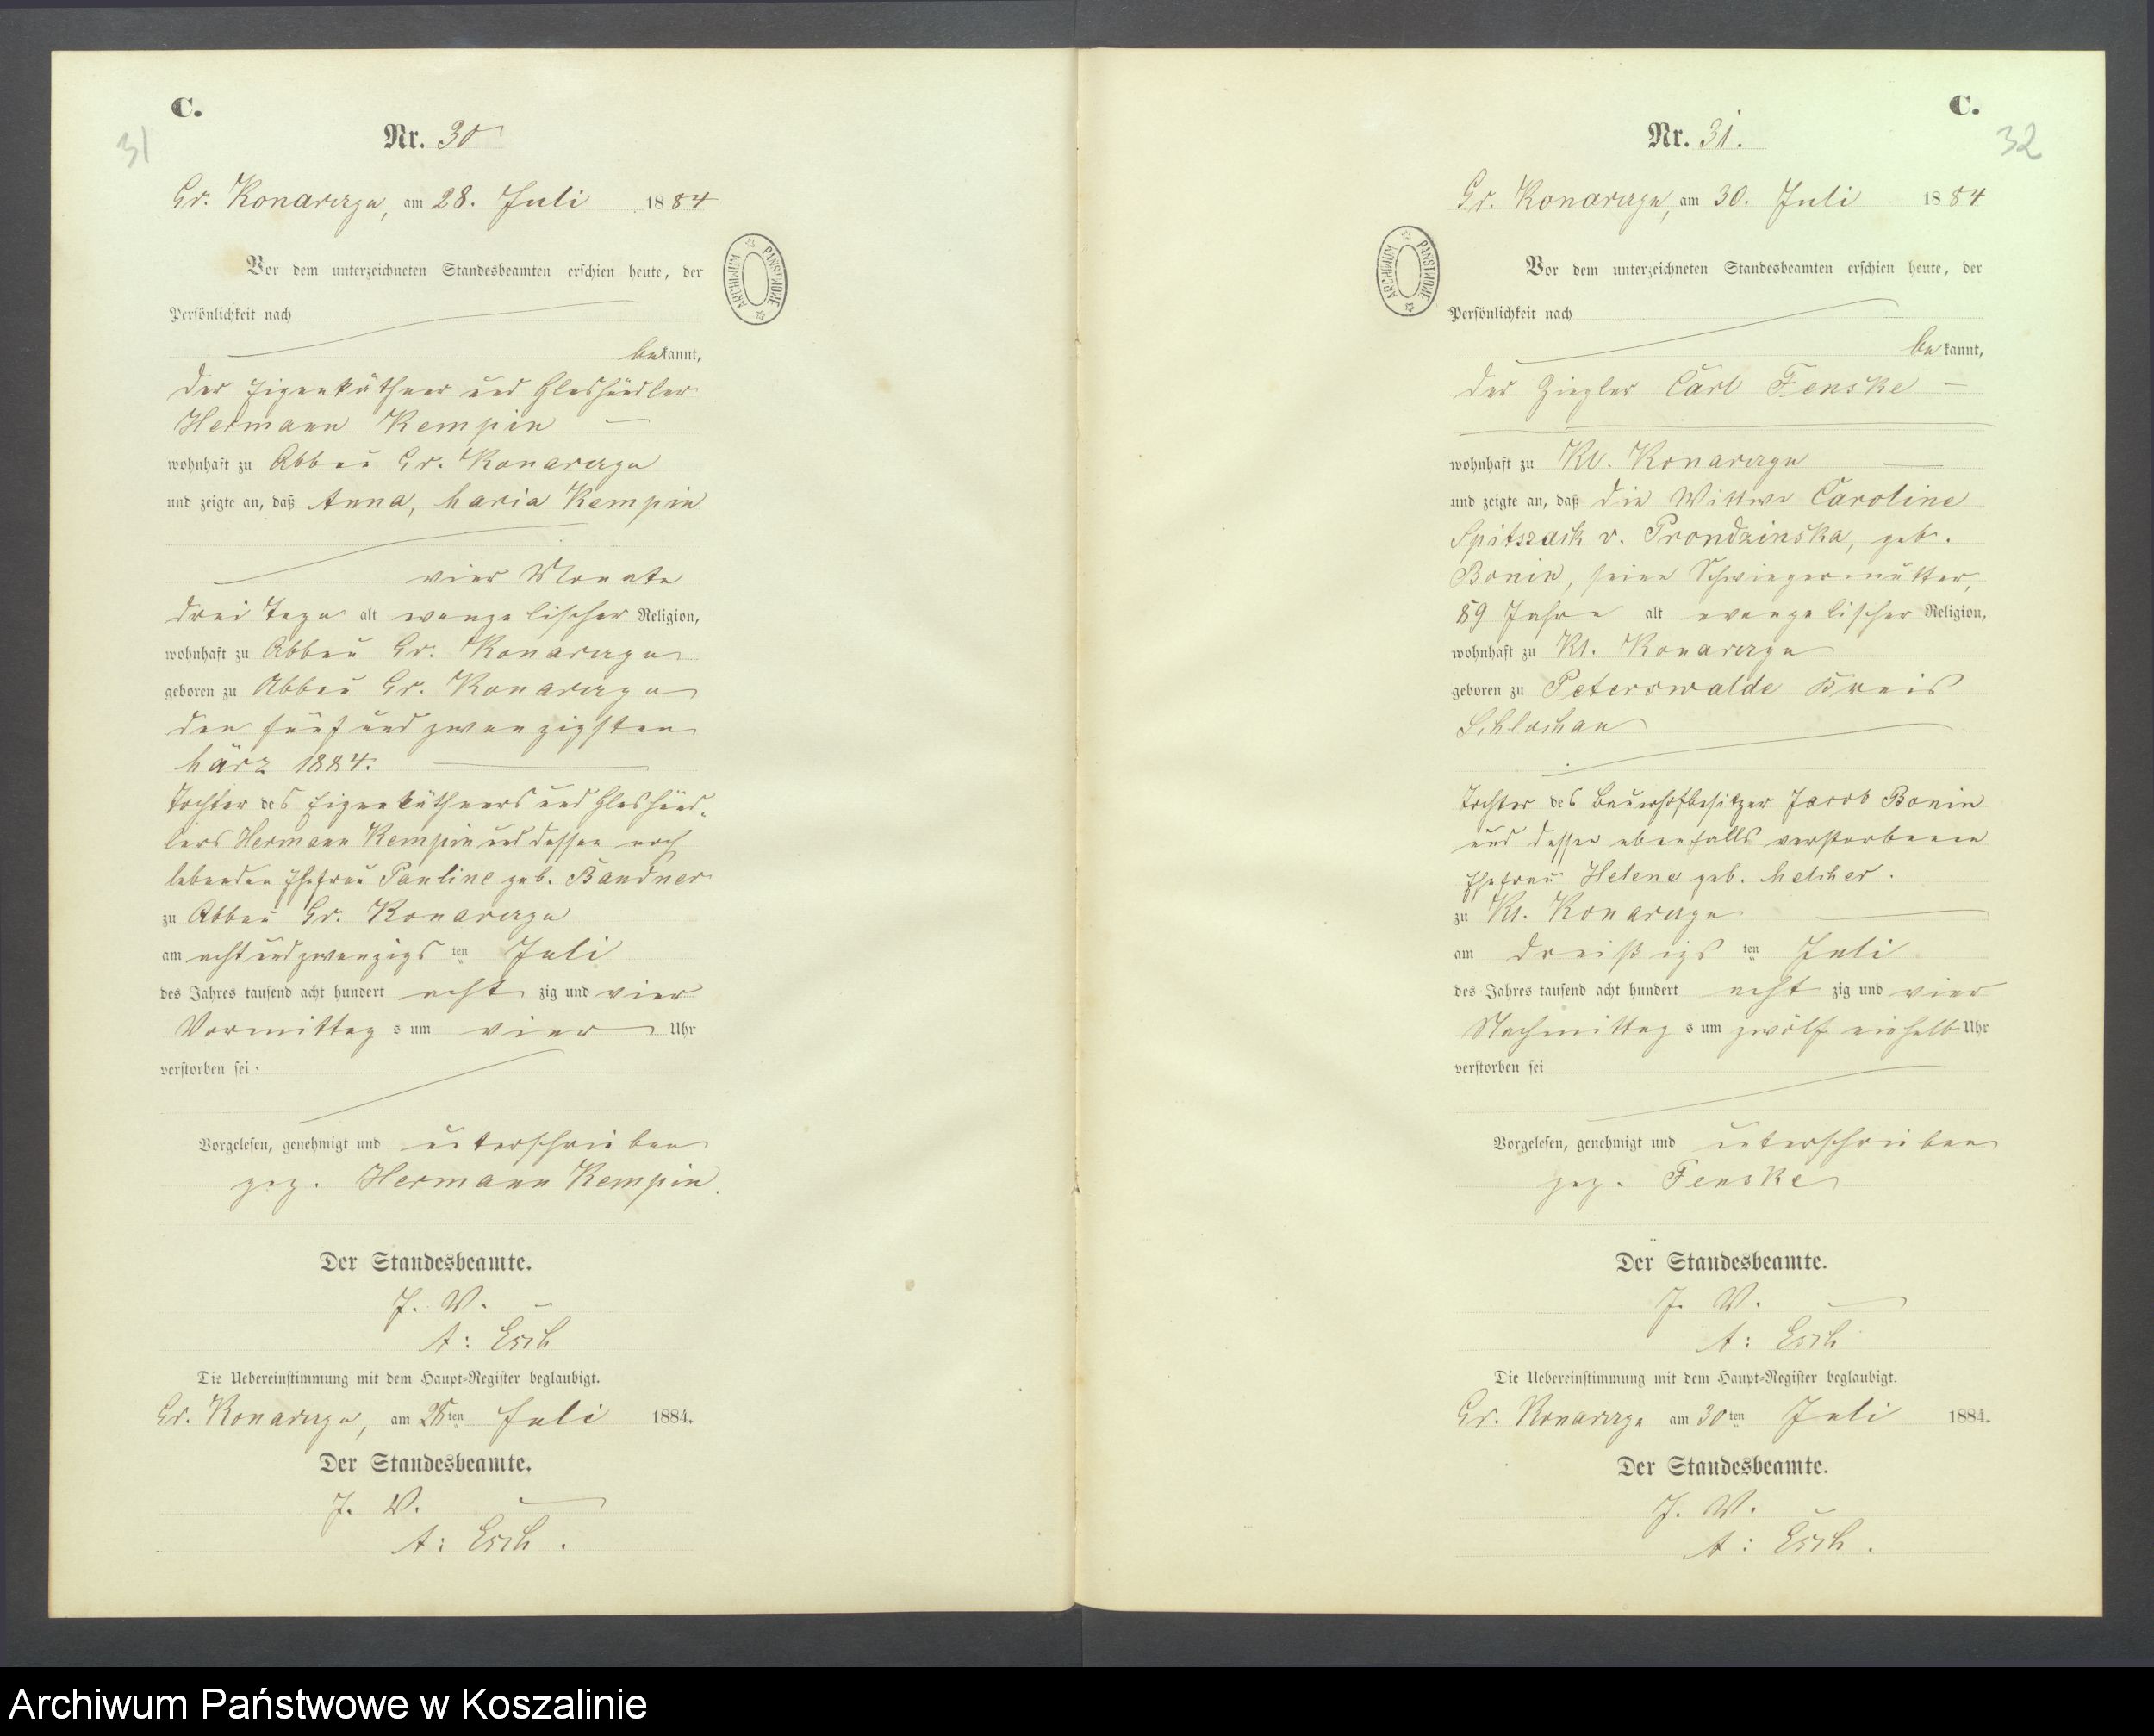 C.
31
Nr. 30
Gr. Konarczyn, am 28. Juli 1884
Vor dem unterzeichneten Standesbeamten erschien heute, der
Persönlichkeit nach
bekannt,
der Eigenkäthner und Glashändler
Hermann Kempin
wohnhaft zu Abbau Gr. Konarczyn
und zeigte an, daß Anna, Maria Kempin
vier Monate
drei Tage alt evangelischer Religion,
wohnhaft zu Abbau Gr. Konarczyn
geboren zu Abbau Gr. Konarczyn
den fünfundzwanzigsten
März 1884.
Tochter des Eigenkäthners und Glashänd-
lers Hermann Kempin und dessen noch
lebenden Ehefrau Pauline geb. Bandner
zu Abbau Gr. Konarczyn
am achtundzwanzigsten Juli
des Jahres tausend acht hundert achtzig und vier
Vormittags um vier Uhr
verstorben sei.
Vorgelesen, genehmigt und unterschrieben
gez. Hermann Kempin.
Der Standesbeamte.
J. V.
A: Esch
Die Uebereinstimmung mit dem Haupt-Register beglaubigt.
Gr. Konarczyn, am 28ten Juli 1884.
Der Standesbeamte.
J. V.
A: Esch.
ARCHIWUM PAŃSTWOWE
C.
32
Nr. 31.
Gr. Konarczyn, am 30. Juli 1884
Vor dem unterzeichneten Standesbeamten erschien heute, der
Persönlichkeit nach
bekannt,
der Ziegler Carl Fenske
wohnhaft zu Kl. Konarczyn
und zeigte an, daß die Wittwe Caroline
v. Prondzinska, geb.
Bonin, seine Schwiegermutter,
89 Jahre alt evangelischer Religion,
wohnhaft zu Kl. Konarczyn
geboren zu Peterswalde Kreis
Schlochau
Tochter des Bauerhofbesitzer Jacob Bonin
und dessen ebenfalls verstorbenen
Ehefrau Helene geb. Melcher.
zu Kl. Konarczyn
am dreißigsten Juli
des Jahres tausend acht hundert achtzig und vier
Nachmittags um zwölf einhalb Uhr
verstorben sei
Vorgelesen, genehmigt und unterschrieben
gez. Fenske
Der Standesbeamte.
J. V.
A: Esch
Die Uebereinstimmung mit dem Haupt-Register beglaubigt.
Gr. Konarczyn am 30ten Juli 1884.
Der Standesbeamte.
J. V.
A: Esch.
ARCHIWUM PAŃSTWOWE
Archiwum Państwowe w Koszalinie